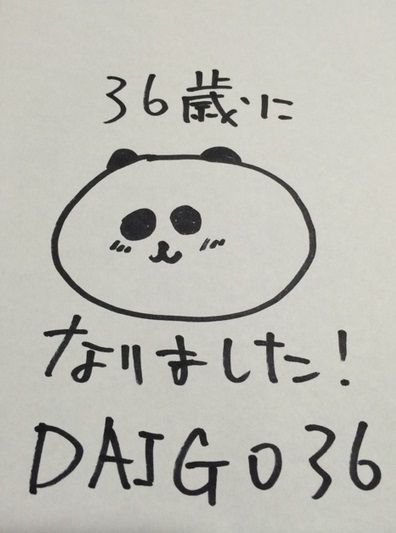 36歳に
なりました!
DAIGO36